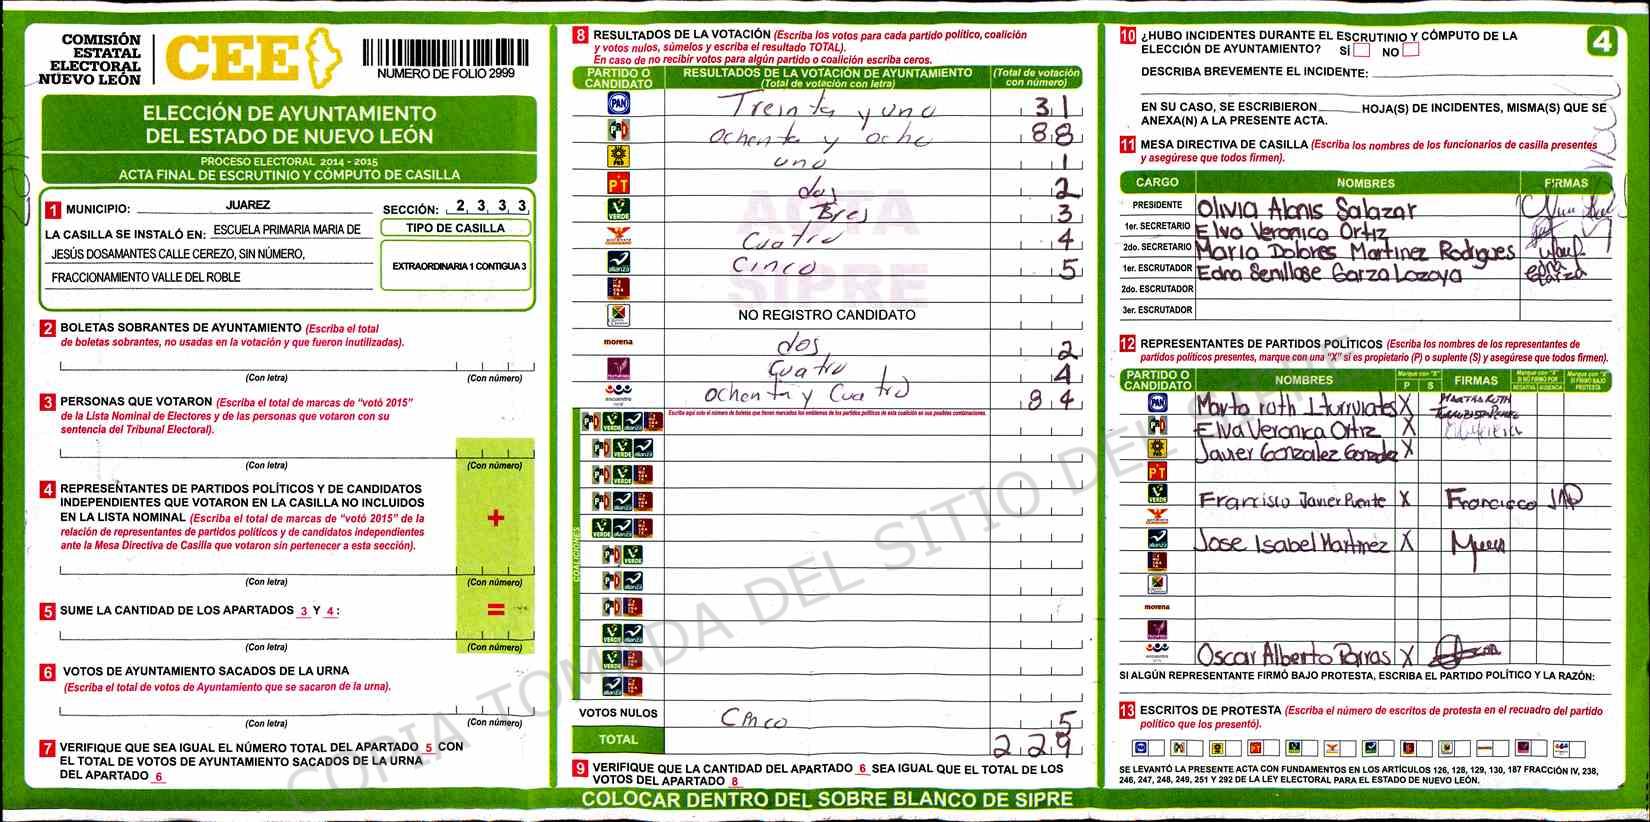 COMISIÓN
ESTATAL
ELECTORAL
NUEVO LEÓN
CEE
NUMERO DE FOLIO 2999
ELECCIÓN DE AYUNTAMIENTO
DEL ESTADO DE NUEVO LEÓN
PROCESO ELECTORAL 2014 - 2015
ACTA FINAL DE ESCRUTINIO Y CÓMPUTO DE CASILLA
1 MUNICIPIO: JUAREZ SECCIÓN: 2 3 3 3
LA CASILLA SE INSTALÓ EN: ESCUELA PRIMARIA MARIA DE
JESÚS DOSAMANTES CALLE CEREZO, SIN NÚMERO,
FRACCIONAMIENTO VALLE DEL ROBLE
TIPO DE CASILLA
EXTRAORDINARIA 1 CONTIGUA 3
2 BOLETAS SOBRANTES DE AYUNTAMIENTO (Escriba el total
de boletas sobrantes, no usadas en la votación y que fueron inutilizadas).
(Con letra) (Con número)
3 PERSONAS QUE VOTARON (Escriba el total de marcas de "votó 2015"
de la Lista Nominal de Electores y de las personas que votaron con su
sentencia del Tribunal Electoral).
(Con letra) (Con número)
4 REPRESENTANTES DE PARTIDOS POLÍTICOS Y DE CANDIDATOS
INDEPENDIENTES QUE VOTARON EN LA CASILLA NO INCLUIDOS
EN LA LISTA NOMINAL (Escriba el total de marcas de "votó 2015" de la
relación de representantes de partidos políticos y de candidatos independientes
ante la Mesa Directiva de Casilla que votaron sin pertenecer a esta sección).
+
(Con letra) (Con número)
5 SUME LA CANTIDAD DE LOS APARTADOS 3 Y 4 :
=
(Con letra) (Con número)
6 VOTOS DE AYUNTAMIENTO SACADOS DE LA URNA
(Escriba el total de votos de Ayuntamiento que se sacaron de la urna).
(Con letra) (Con número)
7 VERIFIQUE QUE SEA IGUAL EL NÚMERO TOTAL DEL APARTADO 5 CON
EL TOTAL DE VOTOS DE AYUNTAMIENTO SACADOS DE LA URNA
DEL APARTADO 6
8 RESULTADOS DE LA VOTACIÓN (Escriba los votos para cada partido político, coalición
y votos nulos, súmelos y escriba el resultado TOTAL).
En caso de no recibir votos para algún partido o coalición escriba ceros.
PARTIDO O CANDIDATO
RESULTADOS DE LA VOTACIÓN DE AYUNTAMIENTO
(Total de votación con letra)
(Total de votación con número)
PAN Treinta y uno 31
PRD ochenta y ocho 88
PRD uno 1
PT dos 2
VERDE Tres 3
Cuatro 4
alianza Cinco 5
NO REGISTRO CANDIDATO
morena dos 2
Cuatro 4
encuentro ochenta y Cuatro 84
Escriba aquí solo el número de boletas que tienen marcados los emblemas de los partidos políticos de esta coalición en sus posibles combinaciones.
COALICIONES
VOTOS NULOS Cinco 5
TOTAL 229
9 VERIFIQUE QUE LA CANTIDAD DEL APARTADO 6 SEA IGUAL QUE EL TOTAL DE LOS
VOTOS DEL APARTADO 8
COLOCAR DENTRO DEL SOBRE BLANCO DE SIPRE
ACTA
SIPRE
COPIA TOMADA DEL SITIO DEL SIPRE
4
10 ¿HUBO INCIDENTES DURANTE EL ESCRUTINIO Y CÓMPUTO DE LA
ELECCIÓN DE AYUNTAMIENTO? SÍ NO
DESCRIBA BREVEMENTE EL INCIDENTE:
EN SU CASO, SE ESCRIBIERON HOJA(S) DE INCIDENTES, MISMA(S) QUE SE
ANEXA(N) A LA PRESENTE ACTA.
11 MESA DIRECTIVA DE CASILLA (Escriba los nombres de los funcionarios de casilla presentes
y asegúrese que todos firmen).
CARGO NOMBRES FIRMAS
PRESIDENTE Olivia Alanis Salazar
1er. SECRETARIO Elva Veronica Ortiz
2do. SECRETARIO Maria Dolores Martinez Rodrigues
1er. ESCRUTADOR Edna Senllase Garza Lozoya Edna Garza
2do. ESCRUTADOR
3er. ESCRUTADOR
12 REPRESENTANTES DE PARTIDOS POLÍTICOS (Escriba los nombres de los representantes de
partidos políticos presentes, marque con una "X" si es propietario (P) o suplente (S) y asegúrese que todos firmen).
PARTIDO O CANDIDATO NOMBRES Marque con "X" P S FIRMAS
PAN Marta ruth Iturruiates X
Elva Veronica Ortiz X
PRD Javier Gonzalez Gonzalez X
PT
VERDE Francisco Javier Puente X Francisco JAP
alianza Jose Isabel Martinez X
morena
encuentro Oscar Alberto Porras X
SI ALGÚN REPRESENTANTE FIRMÓ BAJO PROTESTA, ESCRIBA EL PARTIDO POLÍTICO Y LA RAZÓN:
13 ESCRITOS DE PROTESTA (Escriba el número de escritos de protesta en el recuadro del partido
político que los presentó).
SE LEVANTÓ LA PRESENTE ACTA CON FUNDAMENTOS EN LOS ARTÍCULOS 126, 128, 129, 130, 187 FRACCIÓN IV, 238,
246, 247, 248, 249, 251 Y 292 DE LA LEY ELECTORAL PARA EL ESTADO DE NUEVO LEÓN.